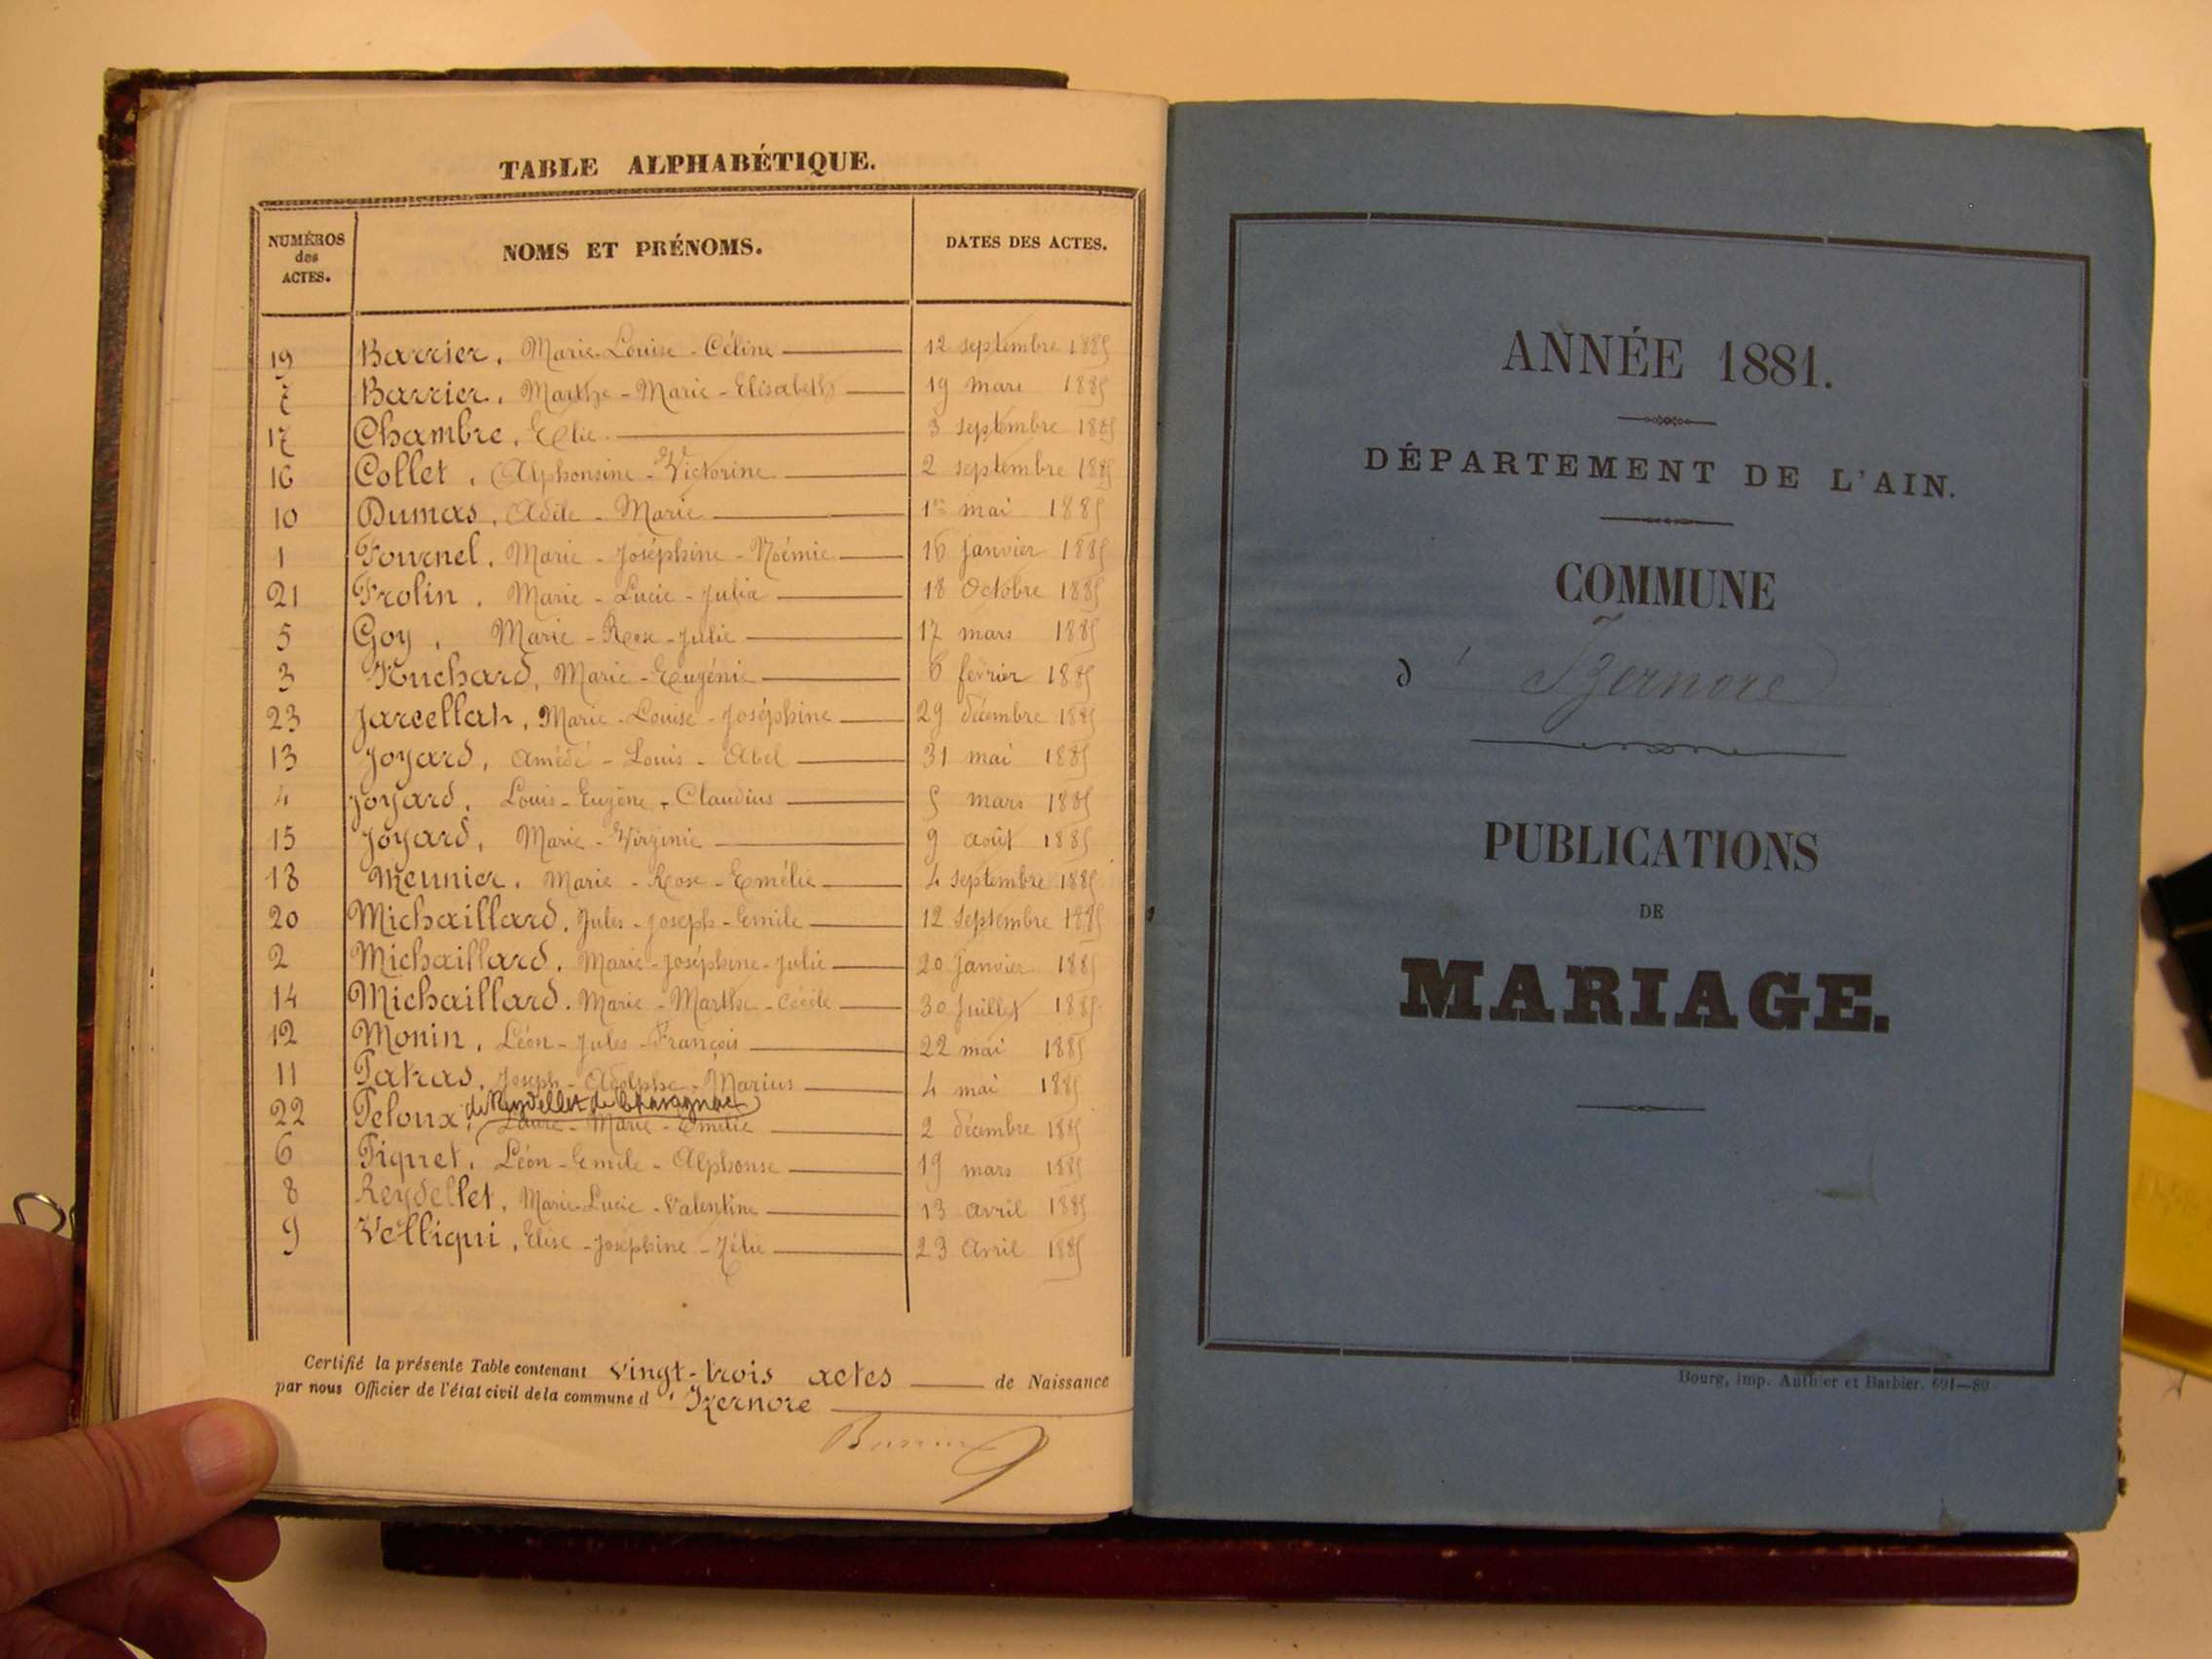 TABLE ALPHABÉTIQUE.
NUMÉROS des ACTES. NOMS ET PRÉNOMS. DATES DES ACTES.
19 Barrier, Marie-Louise-Céline 12 septembre 1885
7 Barrier, Marthe-Marie-Elisabeth 19 mars 1885
17 Chambre, Elie 3 septembre 1885
16 Collet, Alphonsine-Victorine 2 septembre 1885
10 Dumas, Adèle-Marie 1er mai 1885
1 Fournel, Marie-Joséphine-Noémie 16 janvier 1885
21 Frolin, Marie-Lucie-Julia 18 Octobre 1885
5 Goy, Marie-Rose-Julie 17 mars 1885
3 Huchard, Marie-Eugénie 6 février 1885
23 Jarcellat, Marie-Louise-Joséphine 29 décembre 1885
13 Joyard, Amédé-Louis-Abel 31 mai 1885
4 Joyard, Louis-Eugène-Claudius 5 mars 1885
15 Joyard, Marie-Virginie 9 août 1885
18 Meunier, Marie-Rose-Emélie 4 septembre 1885
20 Michaillard, Jules-Joseph-Emile 12 Septembre 1885
2 Michaillard, Marie-Joséphine-Julie 20 janvier 1885
14 Michaillard. Marie-Marthe-Cécile 30 juillet 1885
12 Monin, Léon-Jules-François 22 mai 1885
11 Patras, Joseph-Adolphe-Marius 4 mai 1885
de Reydellet de Chavagnac
22 Peloux, Laure-Marie-Emélie 2 décembre 1885
6 Piquet, Léon-Emile-Alphonse 19 mars 1885
8 Reydellet, Marie-Lucie-Valentine 13 avril 1885
9 Velliqui, Elise-Joséphine-Zélie 23 Avril 1885
Certifié la présente Table contenant vingt-trois actes de Naissance
par nous Officier de l'état civil de la commune d'Izernore
ANNÉE 1881.
DÉPARTEMENT DE L'AIN.
COMMUNE
d'Izernore
PUBLICATIONS
DE
MARIAGE.
Bourg, imp. Authier et Barbier. 691—80